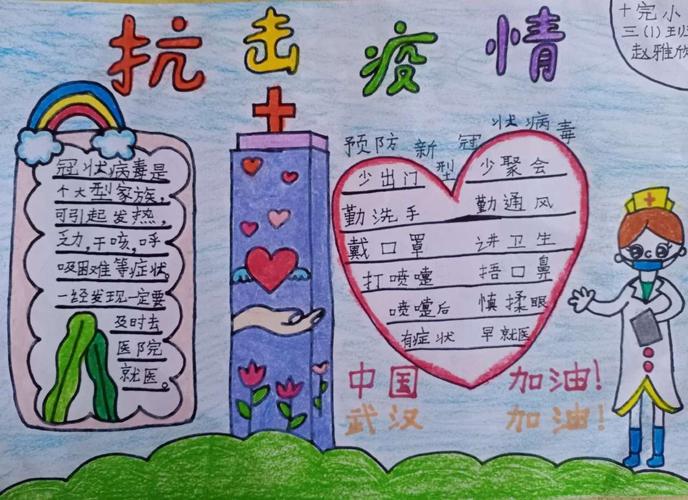 抗击疫情
十完小
三(1)班
赵雅欣
冠状病毒是
个大型家族,
可引起发热,
乏力,干咳,呼
吸困难等症状。
一经发现一定要
及时去
医院
就医。
预防新型冠状病毒
少出门 少聚会
勤洗手 勤通风
戴口罩 讲卫生
打喷嚏 捂口鼻
喷嚏后 慎揉眼
有症状 早就医
中国 加油!
武汉 加油!